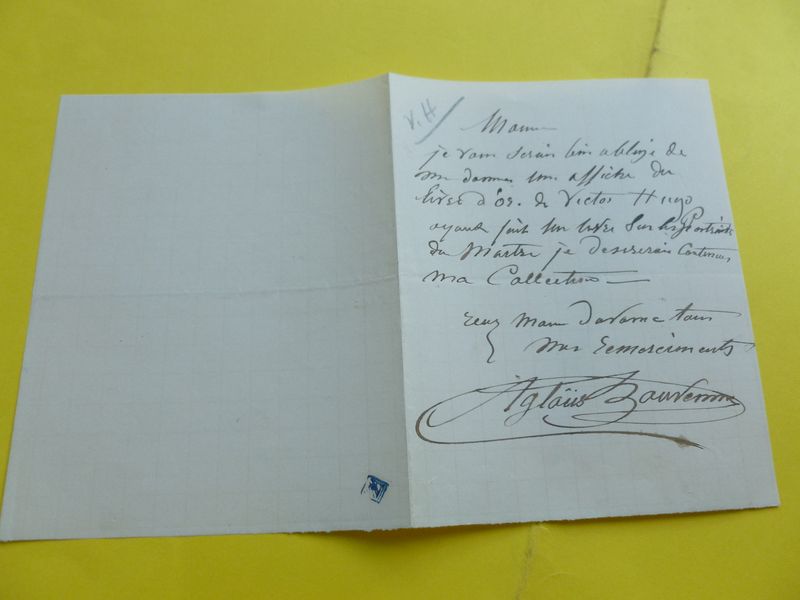 V. H
je vous serais bien obligé de
me donner une affiche du
livre d'or. de Victor Hugo
ayant fait un livre sur les Portraits
du Maitre je desirerais Continuer
ma Collection
recevez d'avance tous
mes remerciments
Aglaüs Bouvenne